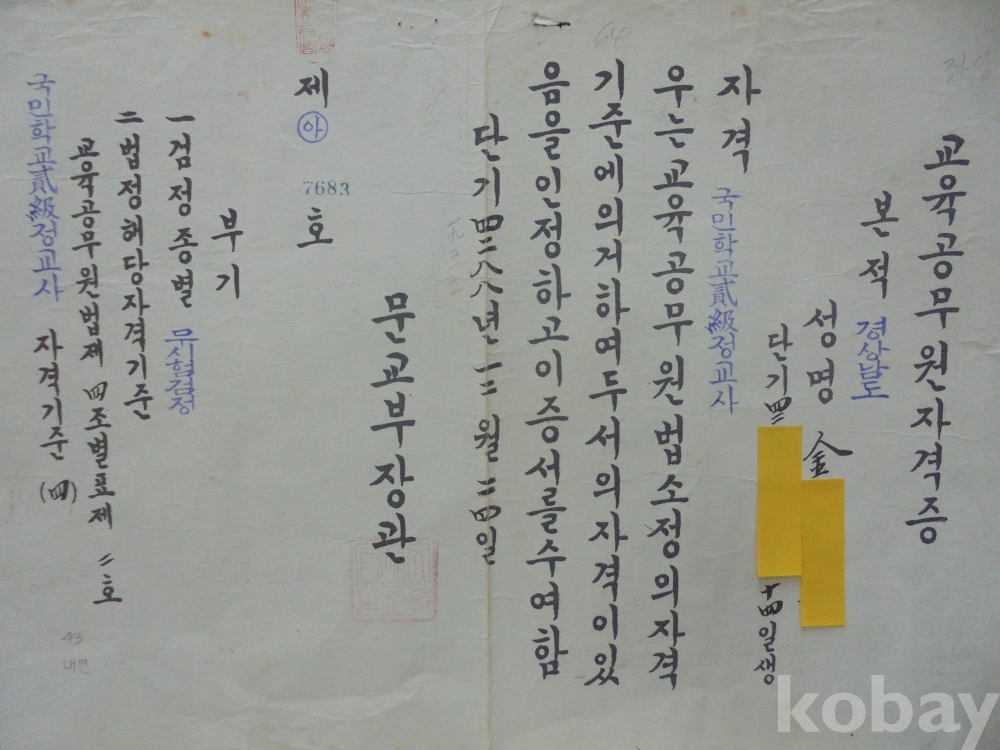 교육공무원자격증
본적 경상남도
성명 金
단기四二 十四일생
자격 국민학교貳級정교사
우는교육공무원법소정의자격
기준에의거하여두서의자격이있
음을인정하고이증서를수여함
단기四二八八년一二월二四일
문교부장관
제 아 7683 호
부기
一검정종별 무시험검정
二법정해당자격기준
교육공무원법제四조별표제二호
국민학교貳級정교사 자격기준(四)
64
43
kobay